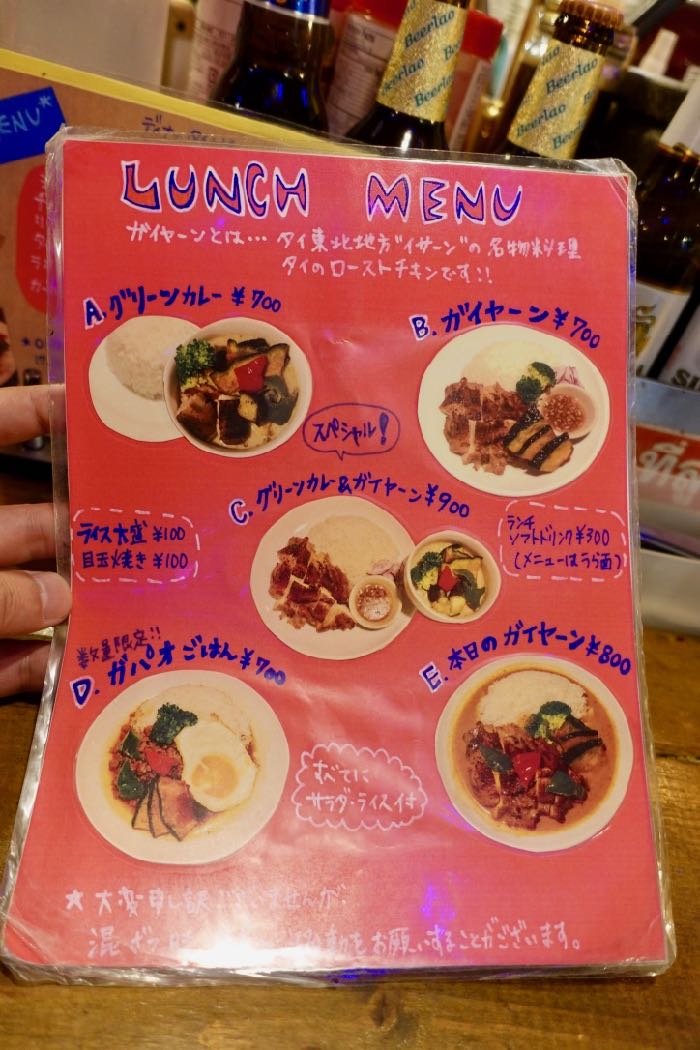 LUNCH MENU
ガイヤーンとは… タイ東北地方"イサーン"の名物料理
タイのローストチキンです!!
A. グリーンカレー ¥700
B. ガイヤーン ¥700
スペシャル!
C. グリーンカレー&ガイヤーン ¥900
ライス大盛 ¥100
目玉焼き ¥100
ランチ
ソフトドリンク ¥300
(メニューはうら面)
数量限定!!
D. ガパオごはん ¥700
E. 本日のガイヤーン ¥800
すべてに
サラダ・ライス付
★大変申し訳ございませんが、
混ざう時
をお願いすることがございます。
Beerlao
Beerlao
Beerlao
Beerlao
ENU★